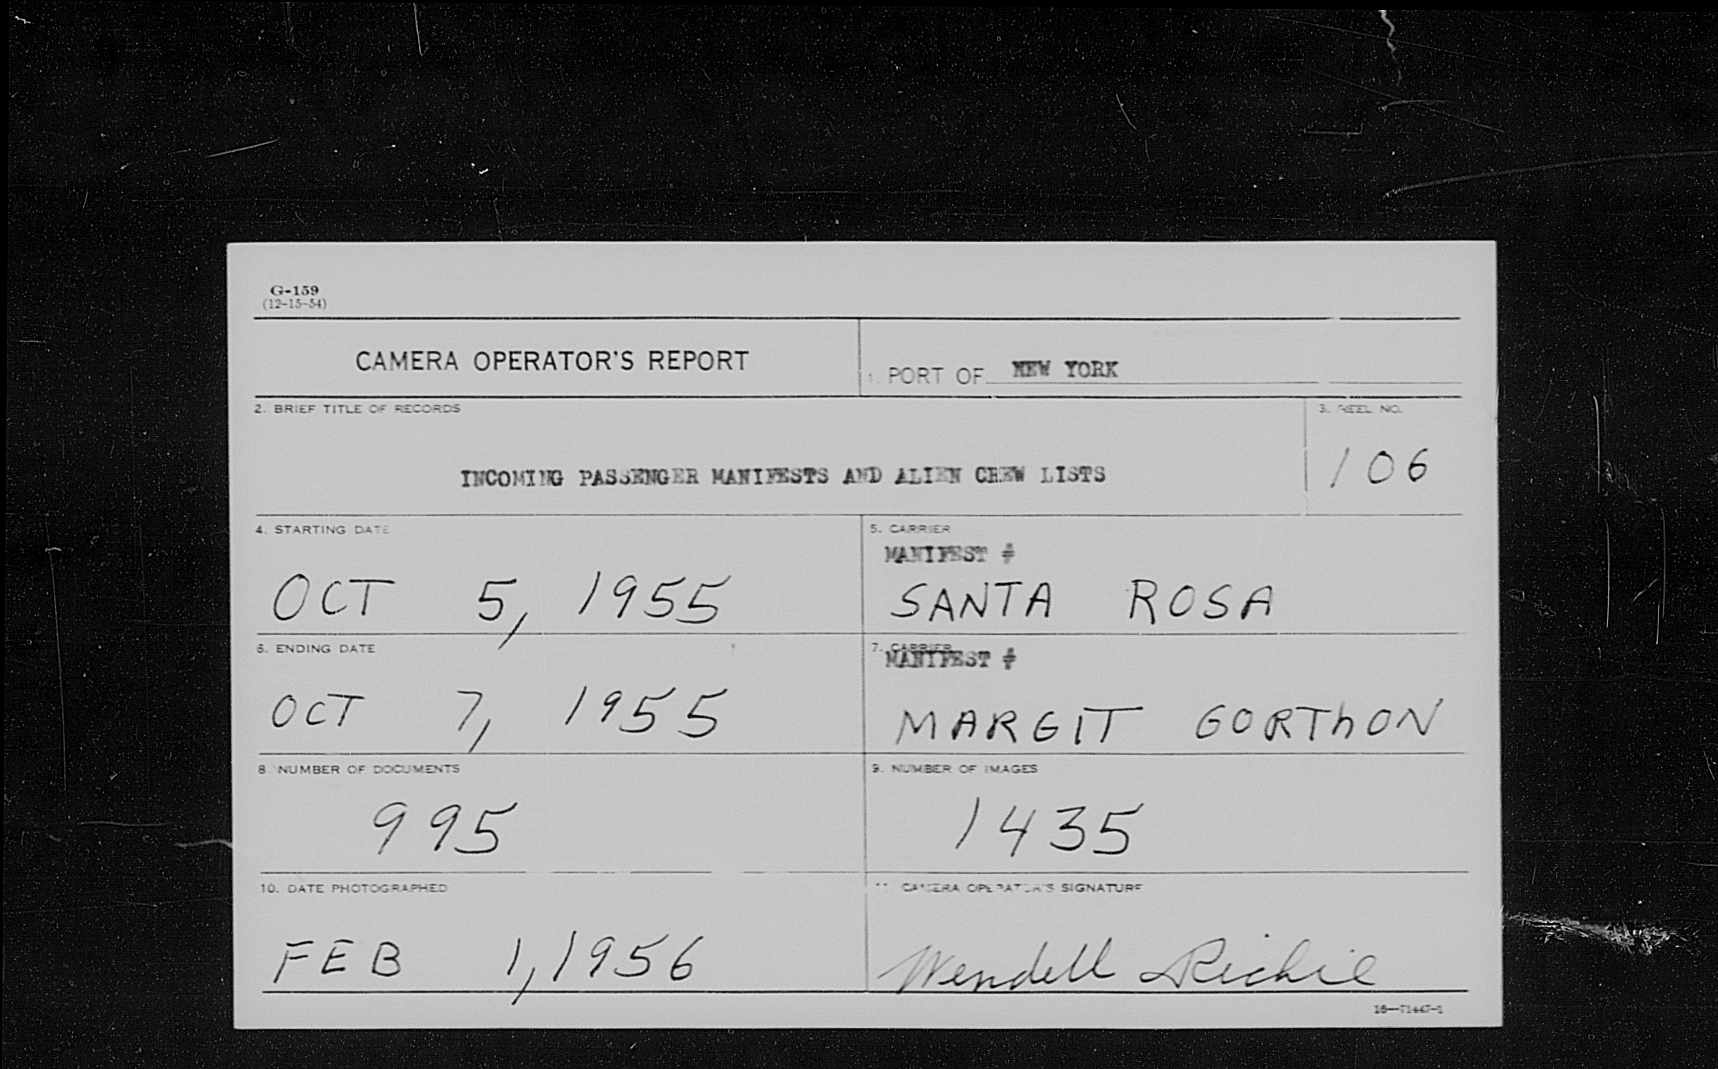 G-159
(12-15-54)
CAMERA OPERATOR'S REPORT
1. PORT OF NEW YORK
2. BRIEF TITLE OF RECORDS
INCOMING PASSENGER MANIFESTS AND ALIEN CREW LISTS
3. REEL NO.
106
4. STARTING DATE
OCT 5, 1955
5. CARRIER
MANIFEST #
SANTA ROSA
6. ENDING DATE
OCT 7, 1955
7. CARRIER
MANIFEST #
MARGIT GORThON
8. NUMBER OF DOCUMENTS
995
9. NUMBER OF IMAGES
1435
10. DATE PHOTOGRAPHED
FEB 1, 1956
11. CAMERA OPERATOR'S SIGNATURE
Wendell Richie
16—71447-1